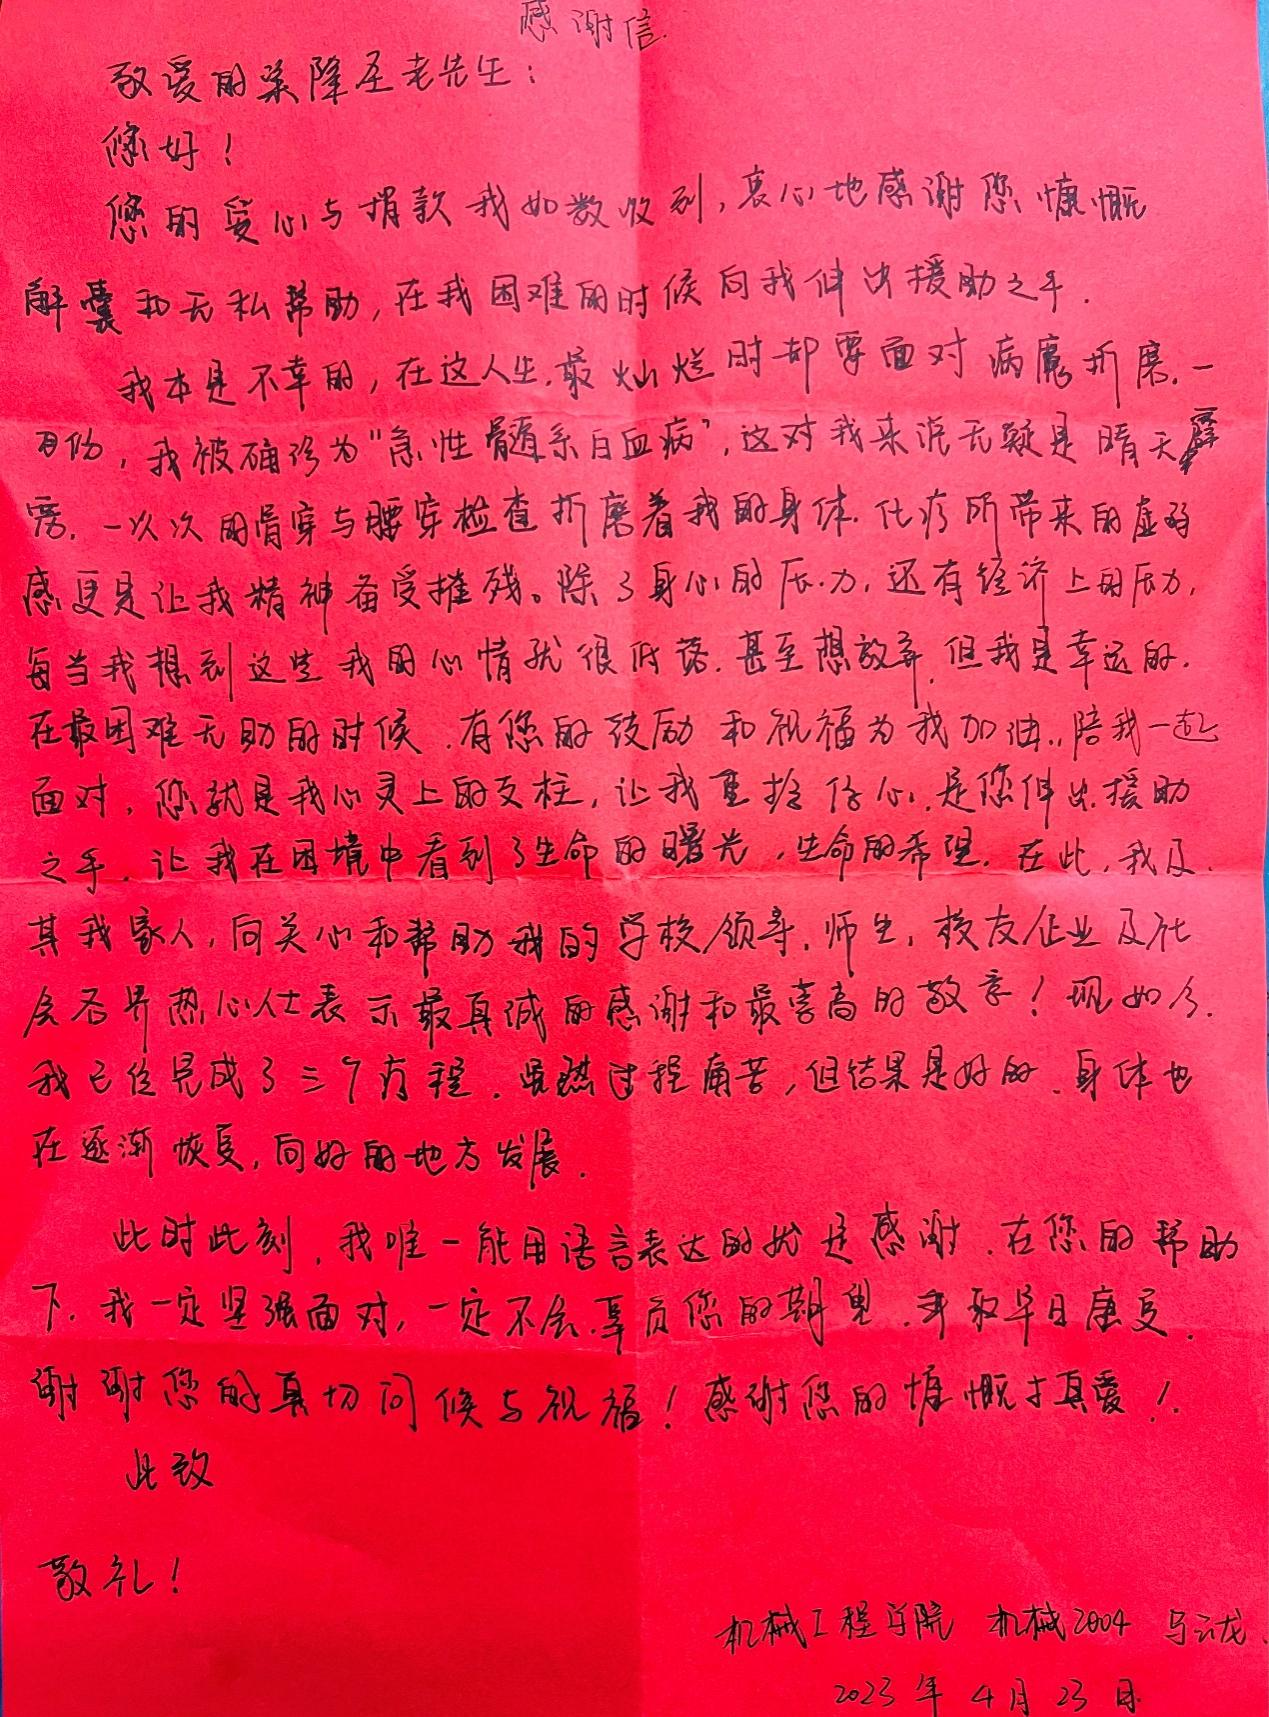 感谢信
敬爱的梁隆圣老先生：
您好！
您的爱心与捐款我如数收到，衷心地感谢您慷慨
解囊和无私帮助，在我困难的时候向我伸出援助之手.
我本是不幸的，在这人生最灿烂时却要面对病魔折磨.一
月份，我被确诊为“急性髓系白血病”，这对我来说无疑是晴天霹
雳.一次次的骨穿与腰穿检查折磨着我的身体.化疗所带来的虚弱
感更是让我精神备受摧残。除了身心的压力，还有经济上的压力，
每当我想到这些我的心情就很低落.甚至想放弃.但我是幸运的.
在最困难无助的时候.有您的鼓励和祝福为我加油..陪我一起
面对，您就是我心灵上的支柱，让我重拾信心.是您伸出援助
之手.让我在困境中看到了生命的曙光，生命的希望.在此，我及.
其我家人，向关心和帮助我的学校领导.师生，校友企业及社
会各界热心人士表示最真诚的感谢和最崇高的敬意！现如今.
我已经完成了三个疗程.虽然过程痛苦，但结果是好的.身体也
在逐渐恢复，向好的地方发展.
此时此刻，我唯一能用语言表达的就是感谢.在您的帮助
下.我一定坚强面对，一定不会辜负您的期望.争取早日康复.
谢谢您的真切问候与祝福！感谢您的慷慨与真爱！.
此致
敬礼！
机械工程学院 机械2004 马云龙.
2023年4月23日